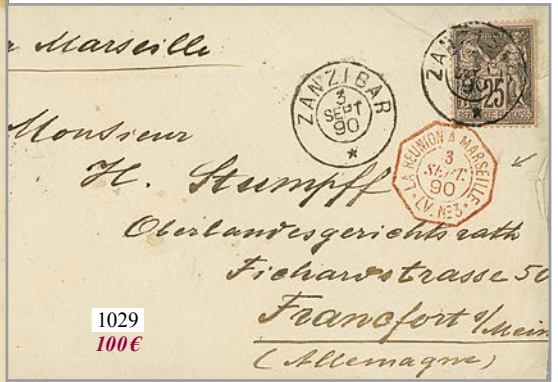 Marseille
ZANZIBAR
3
SEPT
90
*
ZAN
90
*
25
LA REUNION A MARSEILLE
3
SEPT.
90
* LV. Nº3 *
Monsieur
H. Stumpff
Oberlandesgerichtsrath
Fichardstrasse 50
Francfort s/Mein
(Allemagne)
1029
100€